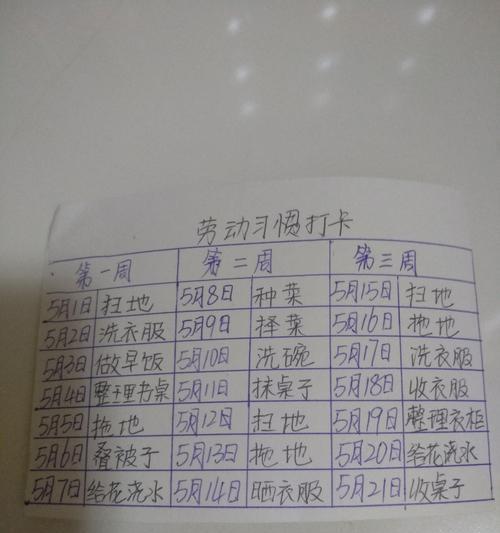 劳动习惯打卡
第一周 第二周 第三周
5月1日 扫地 5月8日 种菜 5月15日 扫地
5月2日 洗衣服 5月9日 择菜 5月16日 拖地
5月3日 做早饭 5月10日 洗碗 5月17日 洗衣服
5月4日 整理书桌 5月11日 抹桌子 5月18日 收衣服
5月5日 拖地 5月12日 扫地 5月19日 整理衣柜
5月6日 叠被子 5月13日 拖地 5月20日 给花浇水
5月7日 给花浇水 5月14日 晒衣服 5月21日 收桌子